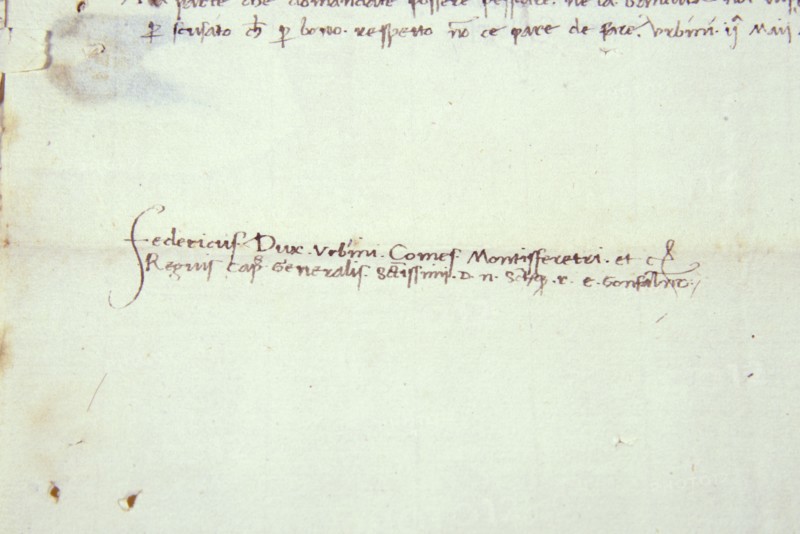 parte che domandate possere pesscare. ne la
p scusato ch p bono. respetto nō ce pare de fare. Vrbini. ij Maij.
Federicus. Dux. Vrbini. Comes. Montisferetri. et c̃
Regius CapS Generalis. Sctissimi. D. n. r. e. Gonfalono.